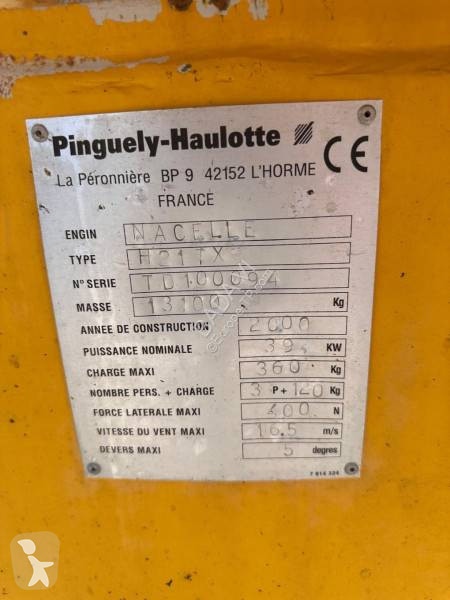 Pinguely-Haulotte
CE
La Péronnière BP 9 42152 L'HORME
FRANCE
ENGIN NACELLE
TYPE H21TX
N° SERIE TD100094
MASSE 13100 Kg
ANNEE DE CONSTRUCTION 2000
PUISSANCE NOMINALE 39, KW
CHARGE MAXI 360 Kg
NOMBRE PERS. + CHARGE 3 P+ 120 Kg
FORCE LATERALE MAXI 400 N
VITESSE DU VENT MAXI 16.5 m/s
DEVERS MAXI 5 degres
7 814 324